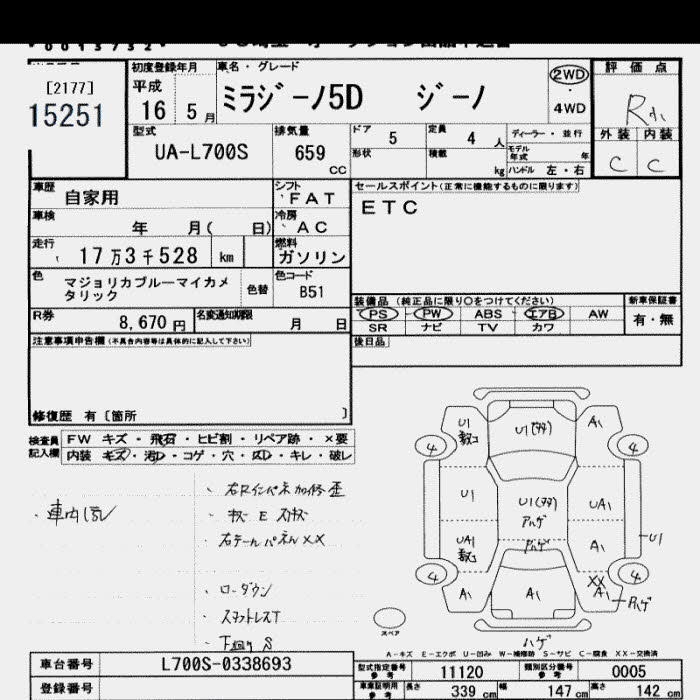 [2177]
15251
初度登録年月
平成
16 5 月
車名・グレード
ミラジーノ5D ジーノ
2WD
・
4WD
評価点
R
外装 内装
C C
型式
UA-L700S
排気量
659
CC
ドア 5
定員 4 人
形状
積載 kg
ディーラー・並行
モデル年式 年
ハンドル 左・右
車歴 自家用
シフト FAT
セールスポイント(正常に機能するものに限ります)
ETC
車検 年 月( 日)
冷房 AC
走行 17万3千528 km
燃料 ガソリン
色 マジョリカブルーマイカメタリック
色替
色コード B51
R券 8,670 円
名変通知期限 月 日
装備品 (純正品に限り○をつけてください)
PS PW ABS エアB AW
SR ナビ TV カワ
新車保証書
有・無
後日品
注意事項申告欄(不具合内容等は具体的に記入して下さい)
修復歴 有〔箇所 〕
検査員記入欄
FW キズ・飛石・ヒビ割・リペア跡・×要
内装 キズ・汚レ・コゲ・穴・スレ・キレ・破レ
ローダウン
スタッドレスT
下回り S
U1
U1
A1
4
4
U1
U1
UA1
UA1
A1
U1
4
4
A1
A1
XX
A1
ハゲ
スペア
A-キズ E-エクボ U-凹み W-補修跡 S-サビ C-腐食 XX-交換済
車台番号 L700S-0338693
登録番号
型式指定番号 参考 11120
類別区分番号 参考 0005
車庫証明用 参考 長さ 339 cm 幅 147 cm 高さ 142 cm